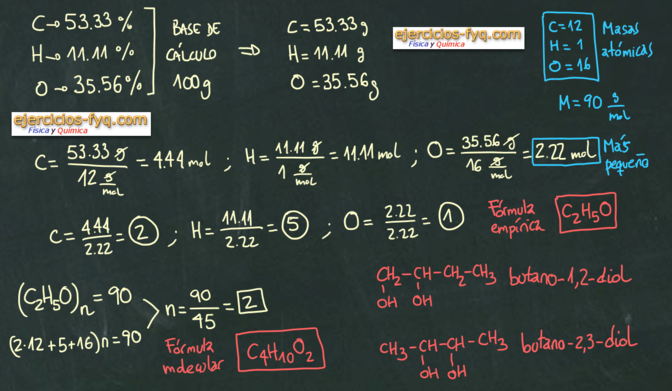 C→53.33 %
H→11.11 %
O→35.56 %
BASE DE
CÁLCULO
100g
⇒
C=53.33g
H=11.11 g
O=35.56g
ejercicios-fyq.com
Física y Química
C=12
H=1
O=16
Masas
atómicas
M=90 g/mol
ejercicios-fyq.com
Física y Química
C= 53.33 g / 12 g/mol = 4.44 mol ; H= 11.11 g / 1 g/mol = 11.11 mol ; O= 35.56 g / 16 g/mol = 2.22 mol
Más
pequeño
C= 4.44/2.22 = 2 ; H= 11.11/2.22 = 5 ; O= 2.22/2.22 = 1
Fórmula
empírica
C₂H₅O
(C₂H₅O)n = 90
(2·12+5+16)n=90
n= 90/45 = 2
Fórmula
molecular
C₄H₁₀O₂
CH₂-CH-CH₂-CH₃ butano-1,2-diol
OH OH
CH₃-CH-CH-CH₃ butano-2,3-diol
OH OH